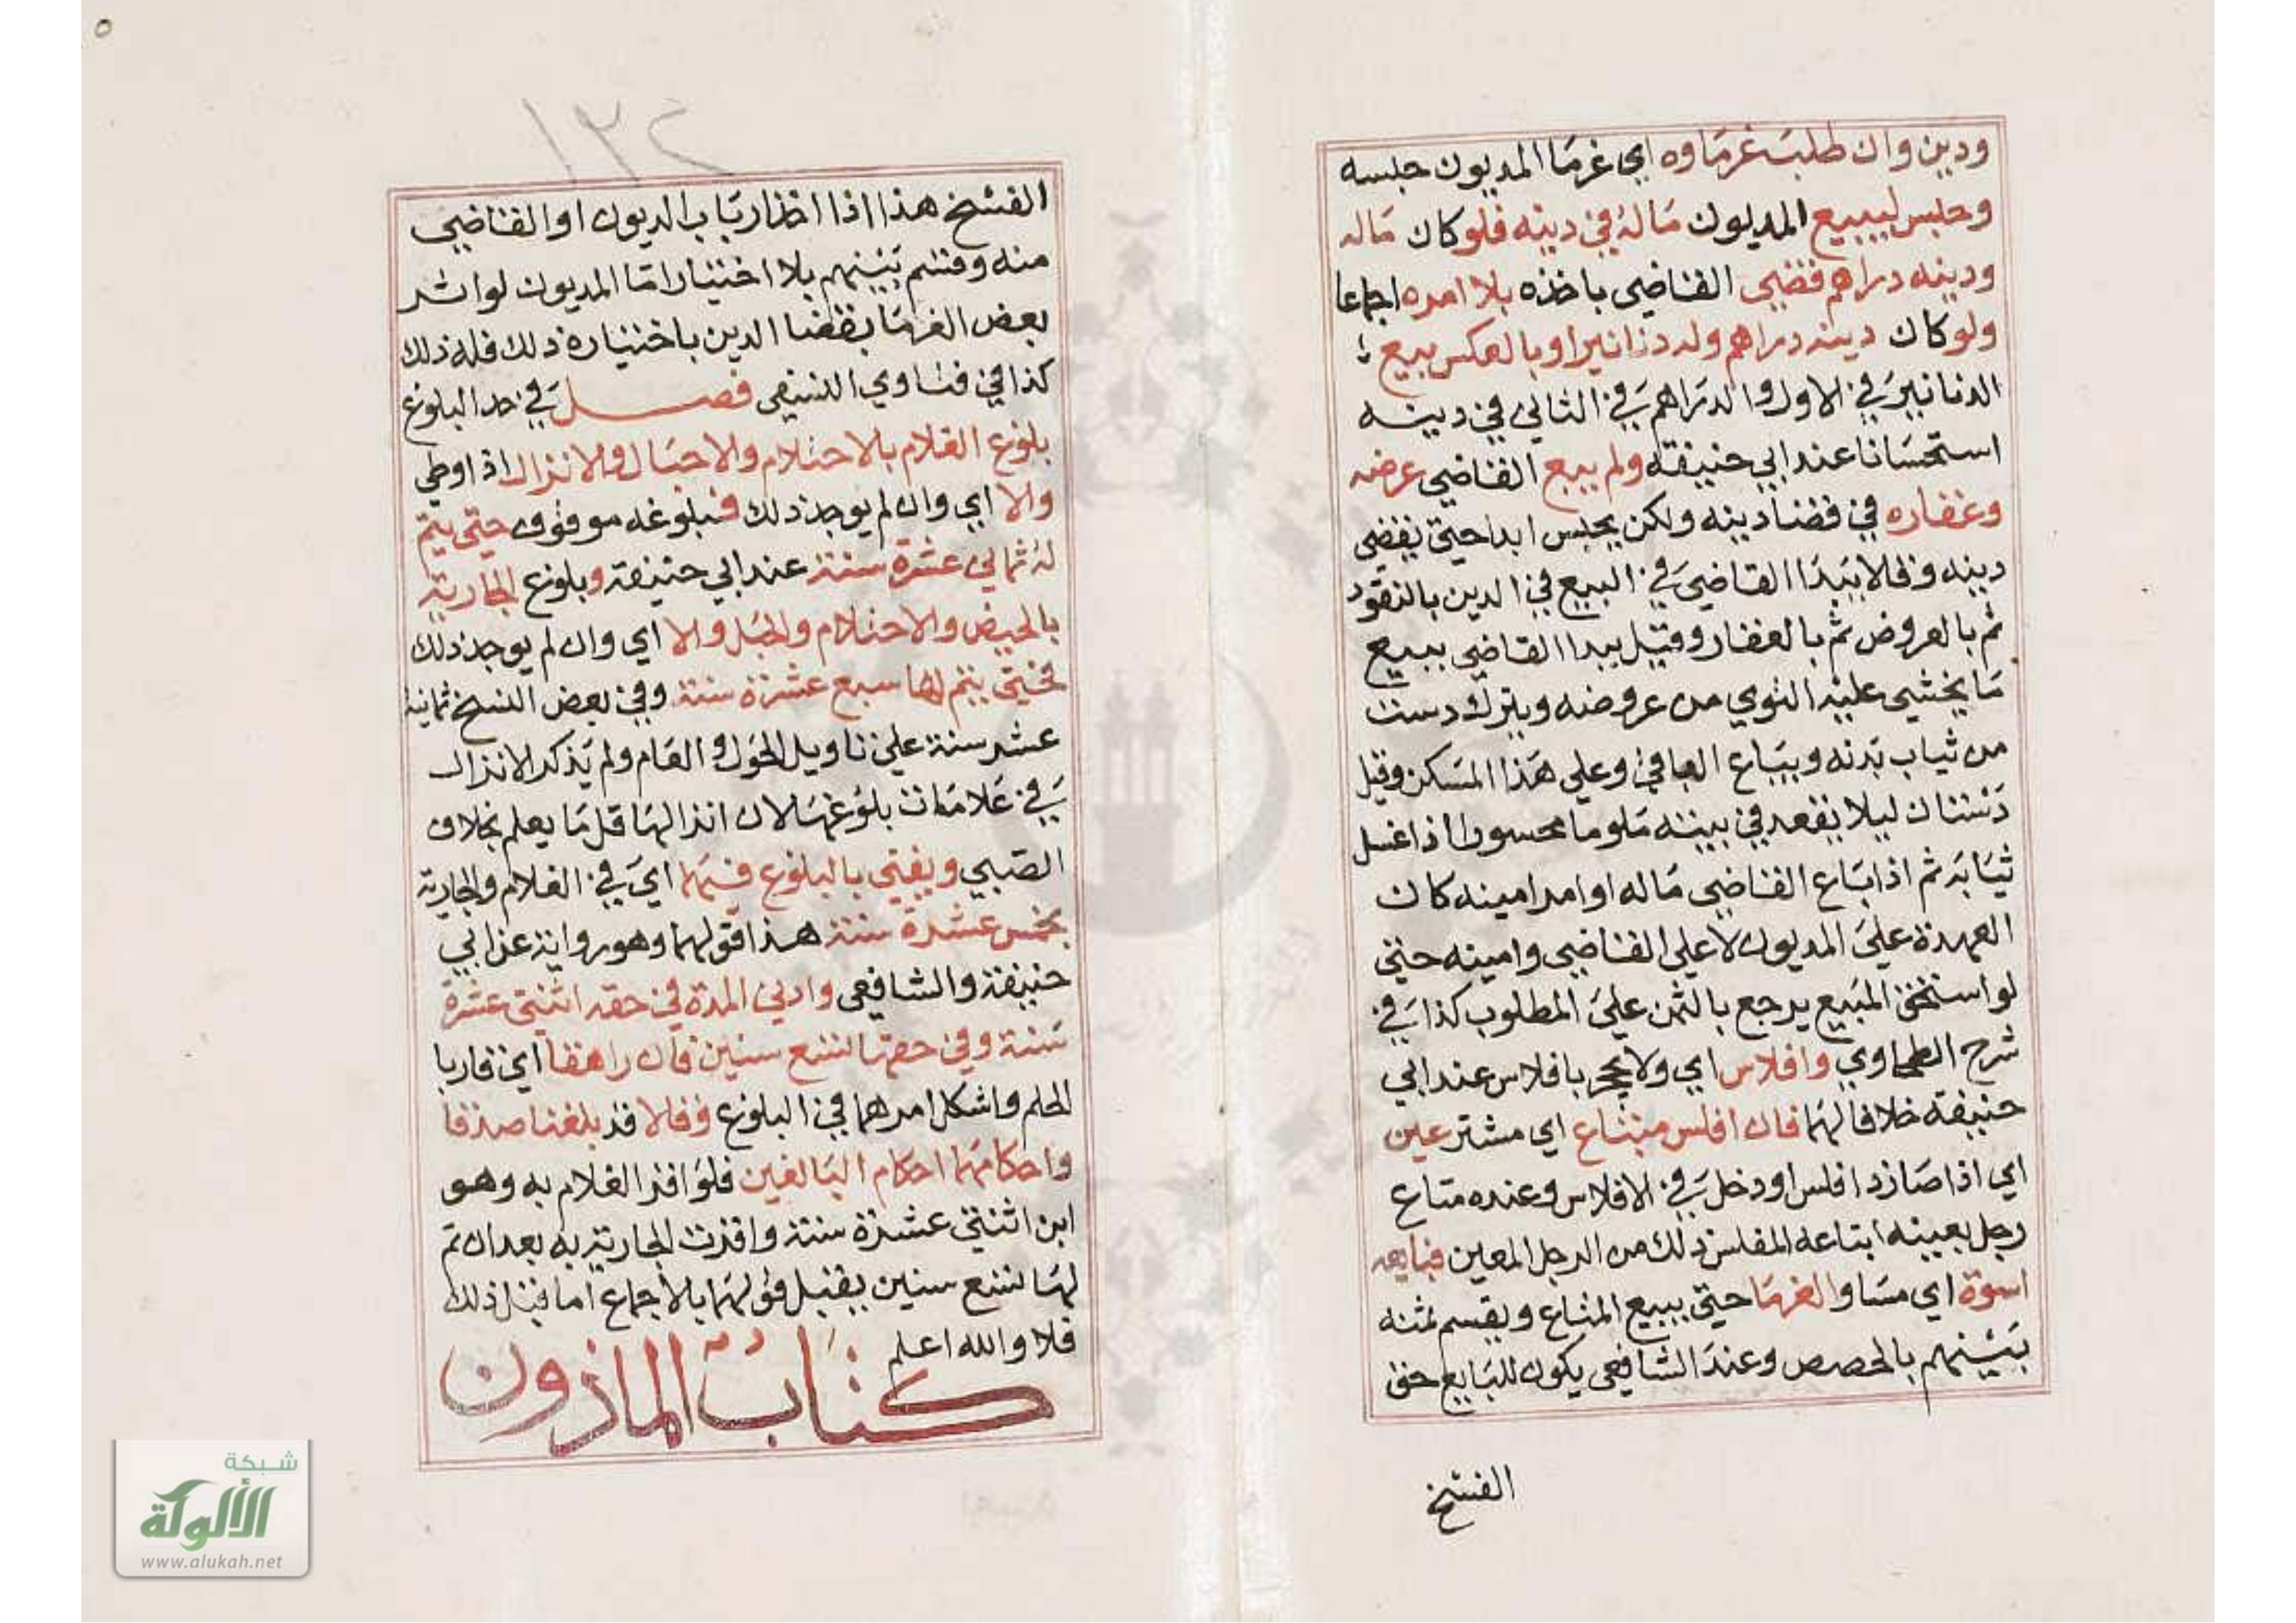 ودين وان طلب غرماوه اي غرما المديون حبسه
وحبس ليبيع المديون ماله في دينه فلو كان ماله
ودينه دراهم قضي القاضي باخذه بلا امره اجماعا
ولو كان دينه دراهم وله دنانيرا وبالعكس بيع
الدنانير في الاول والدراهم في الثاني في دينه
استحسانا عند ابي حنيفة ولم يبع القاضي عرضه
وعقاره في قضا دينه ولكن يحبس ابدا حتي يقضي
دينه وقالا يبدا القاضي في البيع في الدين بالنقود
ثم بالعروض ثم بالعقار وقيل يبدا القاضي ببيع
ما يخشي عليه التوي من عروضه ويترك دست
من ثياب بدنه ويباع الباقي وعلي هذا المسكن وقيل
دستان ليلا يقعد في بيته ملوما محسورا اذا غسل
ثيابه ثم اذا باع القاضي ماله او امر امينه كان
العهدة علي المديون لا علي القاضي وامينه حتي
لو استحق المبيع يرجع بالثمن علي المطلوب كذا في
شرح الطحاوي وافلاس اي ولا يحجر بافلاس عند ابي
حنيفة خلافا لهما فان افلس مبتاع اي مشتر عين
اي اذا صار ذا فلس او دخل في الافلاس وعنده متاع
رجل بعينه ابتاعه المفلس ذلك من الرجل المعين فبايعه
اسوة اي مساو الغرما حتي يبيع المتاع ويقسم ثمنه
بينهم بالحصص وعند الشافعي يكون للبايع حق
الفسخ
١٣٤
الفسخ هذا اذا اخذ ارباب الديون او القاضي
منه وقسم بينهم بلا اختيار اما المديون لو اثر
بعض الغرما بقضا الدين باختياره ذلك فله ذلك
كذا في فتاوي النسفي فصل في حد البلوغ
بلوغ الغلام بالاحتلام والاحبال والانزال اذا وطي
والا اي وان لم يوجد ذلك فبلوغه موقوف حتي يتم
له ثماني عشرة سنة عند ابي حنيفة وبلوغ الجارية
بالحيض والاحتلام والحبل والا اي وان لم يوجد ذلك
فحتي يتم لها سبع عشرة سنة وفي بعض النسخ ثمانية
عشر سنة علي تاويل الحول والعام ولم يذكر الانزال
في علامات بلوغها لان انزالها قل ما يعلم بخلاف
الصبي ويفتي بالبلوغ فيهما اي في الغلام والجارية
بخمس عشرة سنة هذا قولهما وهو رواية عن ابي
حنيفة والشافعي وادني المدة في حقه اثنتي عشرة
سنة وفي حقها تسع سنين فان راهقا اي قاربا
الحلم واشكل امرهما في البلوغ وقالا قد بلغنا صدقا
واحكامهما احكام البالغين فلو اقر الغلام به وهو
ابن اثنتي عشرة سنة واقرت الجارية به بعد ان تم
لها تسع سنين يقبل قولهما بالاجماع اما قبل ذلك
فلا والله اعلم
كتاب الماذون
شبكة
الألوكة
www.alukah.net